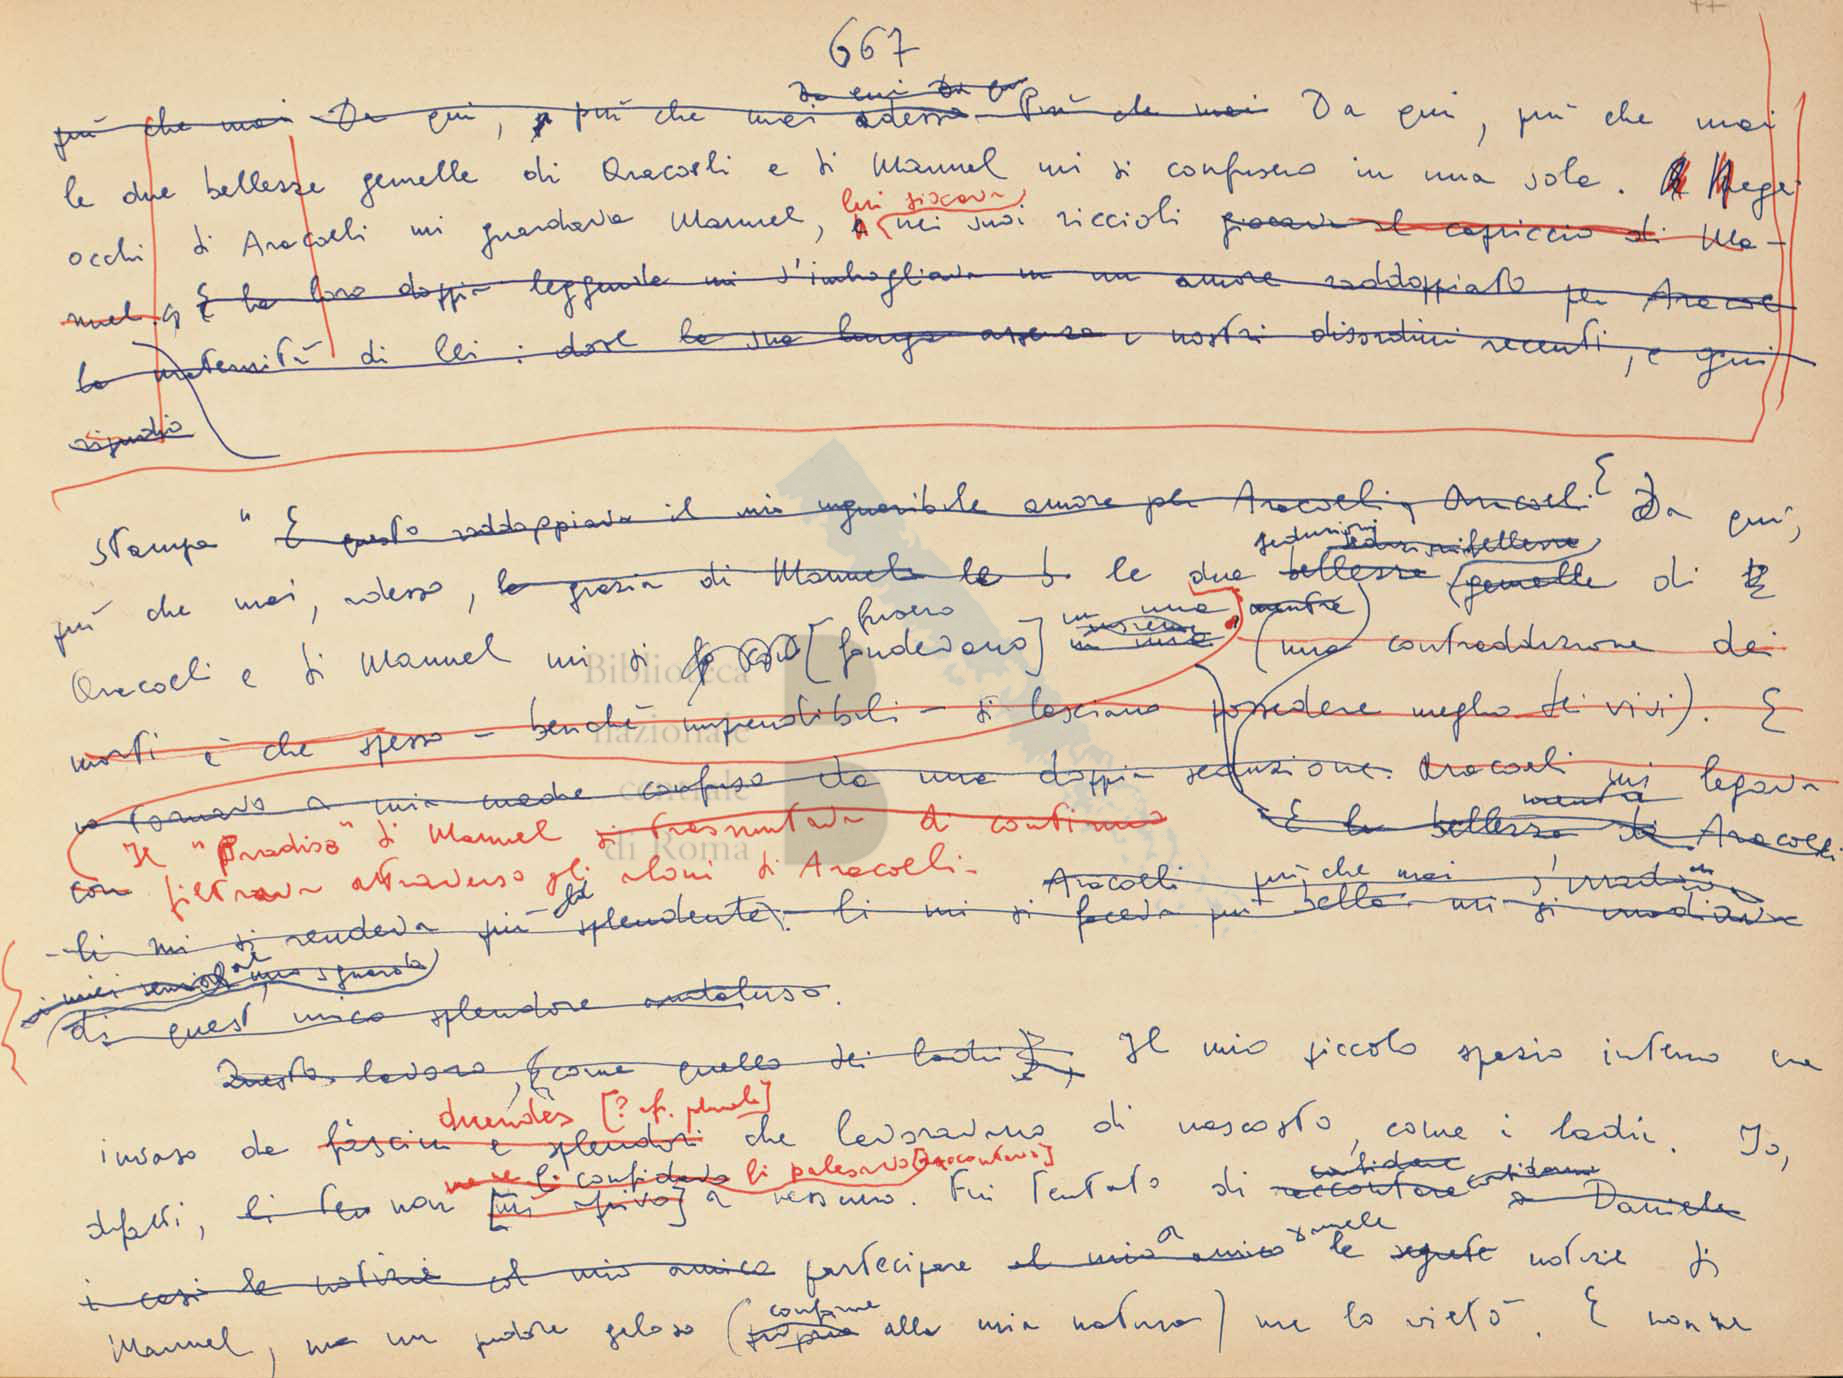 667
Da qui Da qu
più che mai Da qui, più che mai adesso Più che mai Da qui, più che mai
le due bellezze gemelle di Aracoeli e di Manuel mi si confusero in una sola. Negli
lui giocava
occhi di Aracoeli mi guardava Manuel, nei suoi riccioli giocava il capriccio di Ma-
nuel. E la loro doppia leggenda mi s'imbrogliava in un amore raddoppiato per Aracoe
la maternità di lei: dove la sua lunga assenza i nostri disordini recenti, e quei
ripudio
Stampa " E questo raddoppiava il mio inguaribile amore per Aracoeli, Aracoeli E Da qui,
seduzioni
più che mai, adesso, la grazia di Manuel le b le due bellezze gemelle di
fusero in una mentre
Aracoeli e di Manuel mi si [fondevano] in una (una contraddizione dei
morti è che spesso – benché imprendibili – si lasciano possedere meglio dei vivi). E
io tornavo a mia madre confuso da una doppia seduzione. Aracoeli mi legava
Il "Paradiso" di Manuel si trasmutava di continuo E la bellezza di Aracoeli
con filtrava attraverso gli aloni di Aracoeli. Aracoeli più che mai s'irradiava
li mi si rendeva più splendente. li mi si faceva più bella mi si irradiava
i miei sensi al mio sguardo
di quest'unico splendore
Questo lavoro, (come quello dei ladri), Il mio piccolo spazio interno era
duendes [? cfr. plurale]
invaso da fascini e splendori che lavoravano di nascosto, come i ladri. Io,
ne li confidavo li palesavo [raccontavo] confidare
difatti, li non [mi aprivo] a nessuno. Fui tentato di raccontare a Daniele
a
i casi le notizie col mio amico partecipare al mio amico le segrete notizie di
conforme
Manuel, ma un pudore geloso (propria alla mia natura) me lo vietò. E non ne
Biblioteca
nazionale
centrale
di Roma